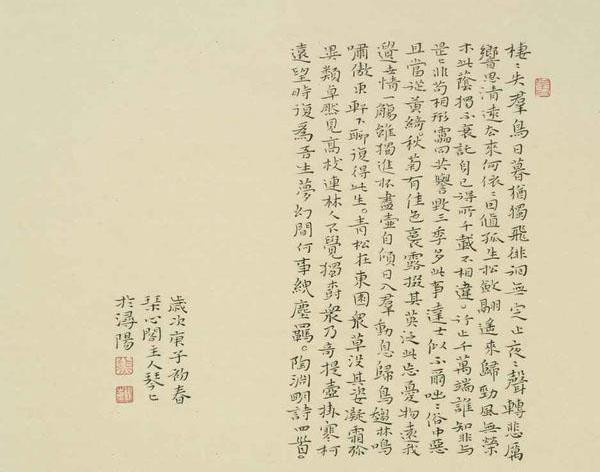 棲〻失羣鳥日暮猶獨飛徘徊無定止夜〻聲轉悲厲
響思清遠去來何依〻因值孤生松斂翮遙來歸勁風無榮
木此蔭獨不衰託身已得所千載不相違。行止千萬端誰知非與
是〻非苟相形靁同共譽毀三季多此事達士似不爾咄〻俗中惡
且當從黃綺。秋菊有佳色裛露掇其英泛此忘憂物遠我
遺世情一觴雖獨進杯盡壺自傾日入羣動息歸鳥趨林鳴
嘯傲東軒下聊復得此生。青松在東園衆草沒其姿凝霜殄
異類卓然見高枝連林人不覺獨樹衆乃奇提壺挂寒柯
遠望時復爲吾生夢幻間何事紲塵羈。陶淵明詩四首。
歲次庚子初春
琹心閣主人琴
於潯陽